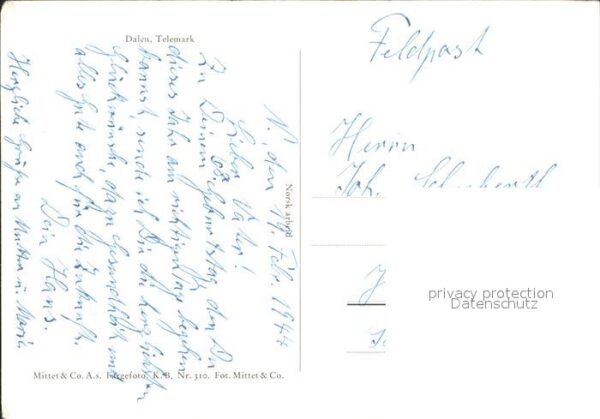 Dalen, Telemark
N., den 19. Febr. 1944
Lieber Vater!
Zu Deinem 68. Geburtstag den Du
dieses Jahr am richtigen Tage begehen
kannst, sende ich Dir die herzlichsten
Glückwünsche, dazu Gesundheit und
alles Gute auch für die Zukunft.
Dein Hans.
Herzliche Grüße an Mutter u. Marie.
Norsk arbeid
Feldpost
Herrn
Joh.
privacy protection
Datenschutz
Mittet & Co. A.s. Fargefoto. K.B. Nr. 310. Fot. Mittet & Co.